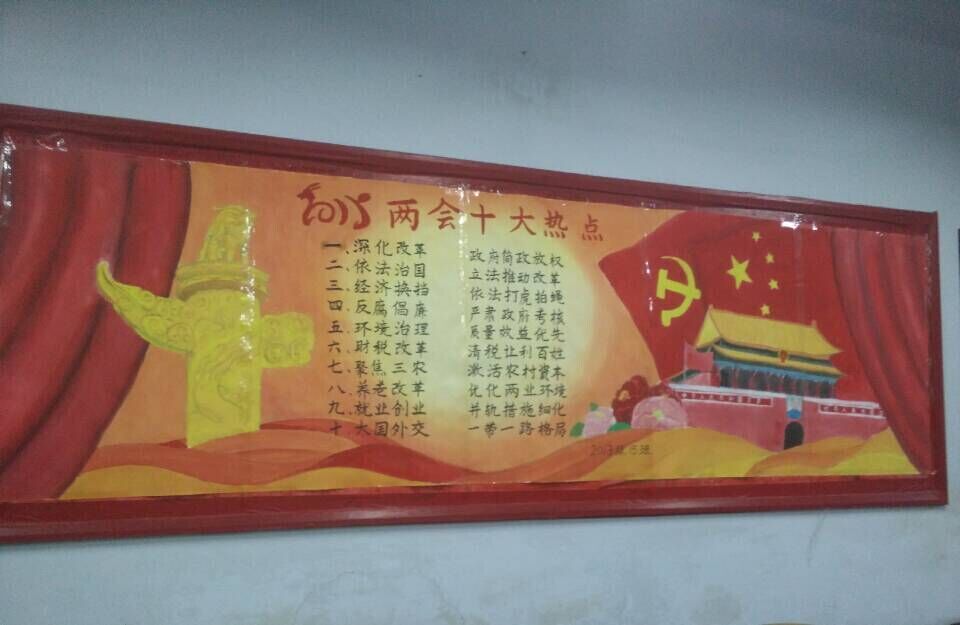 2015两会十大热点
一、深化改革 政府简政放权
二、依法治国 立法推动改革
三、经济换挡 依法打虎拍蝇
四、反腐倡廉 严肃政府考核
五、环境治理 质量效益优先
六、财税改革 清税让利百姓
七、聚焦三农 激活农村资本
八、养老改革 优化两业环境
九、就业创业 并轨措施细化
十、大国外交 一带一路格局